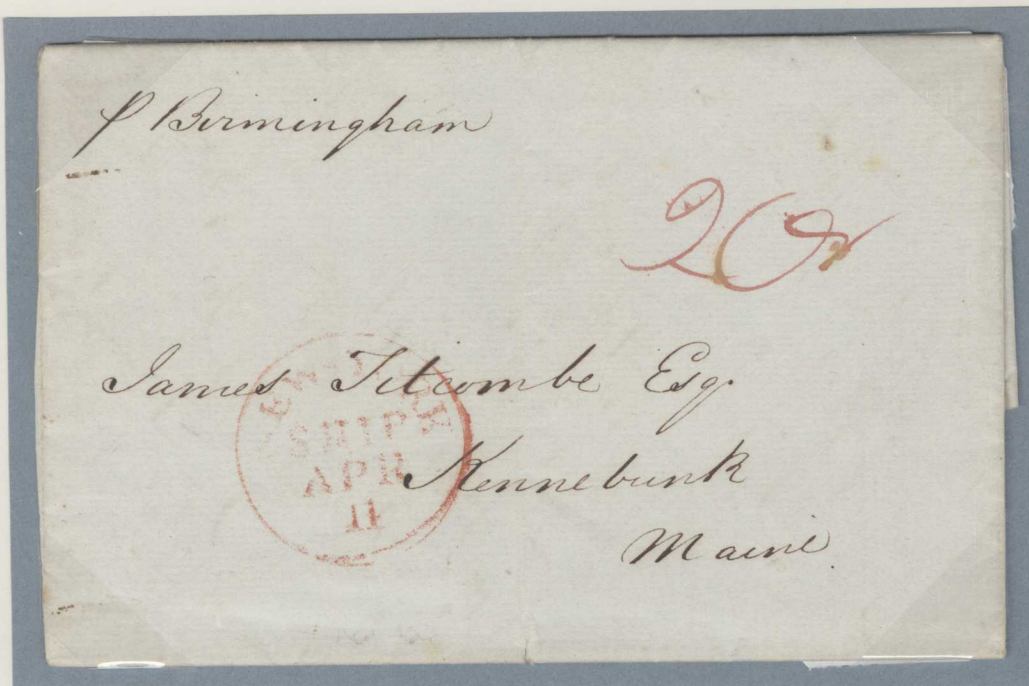 p Birmingham
20¾
James Titcombe Esq.
NEW YORK
SHIP
APR
11
Kennebunk
Maine.